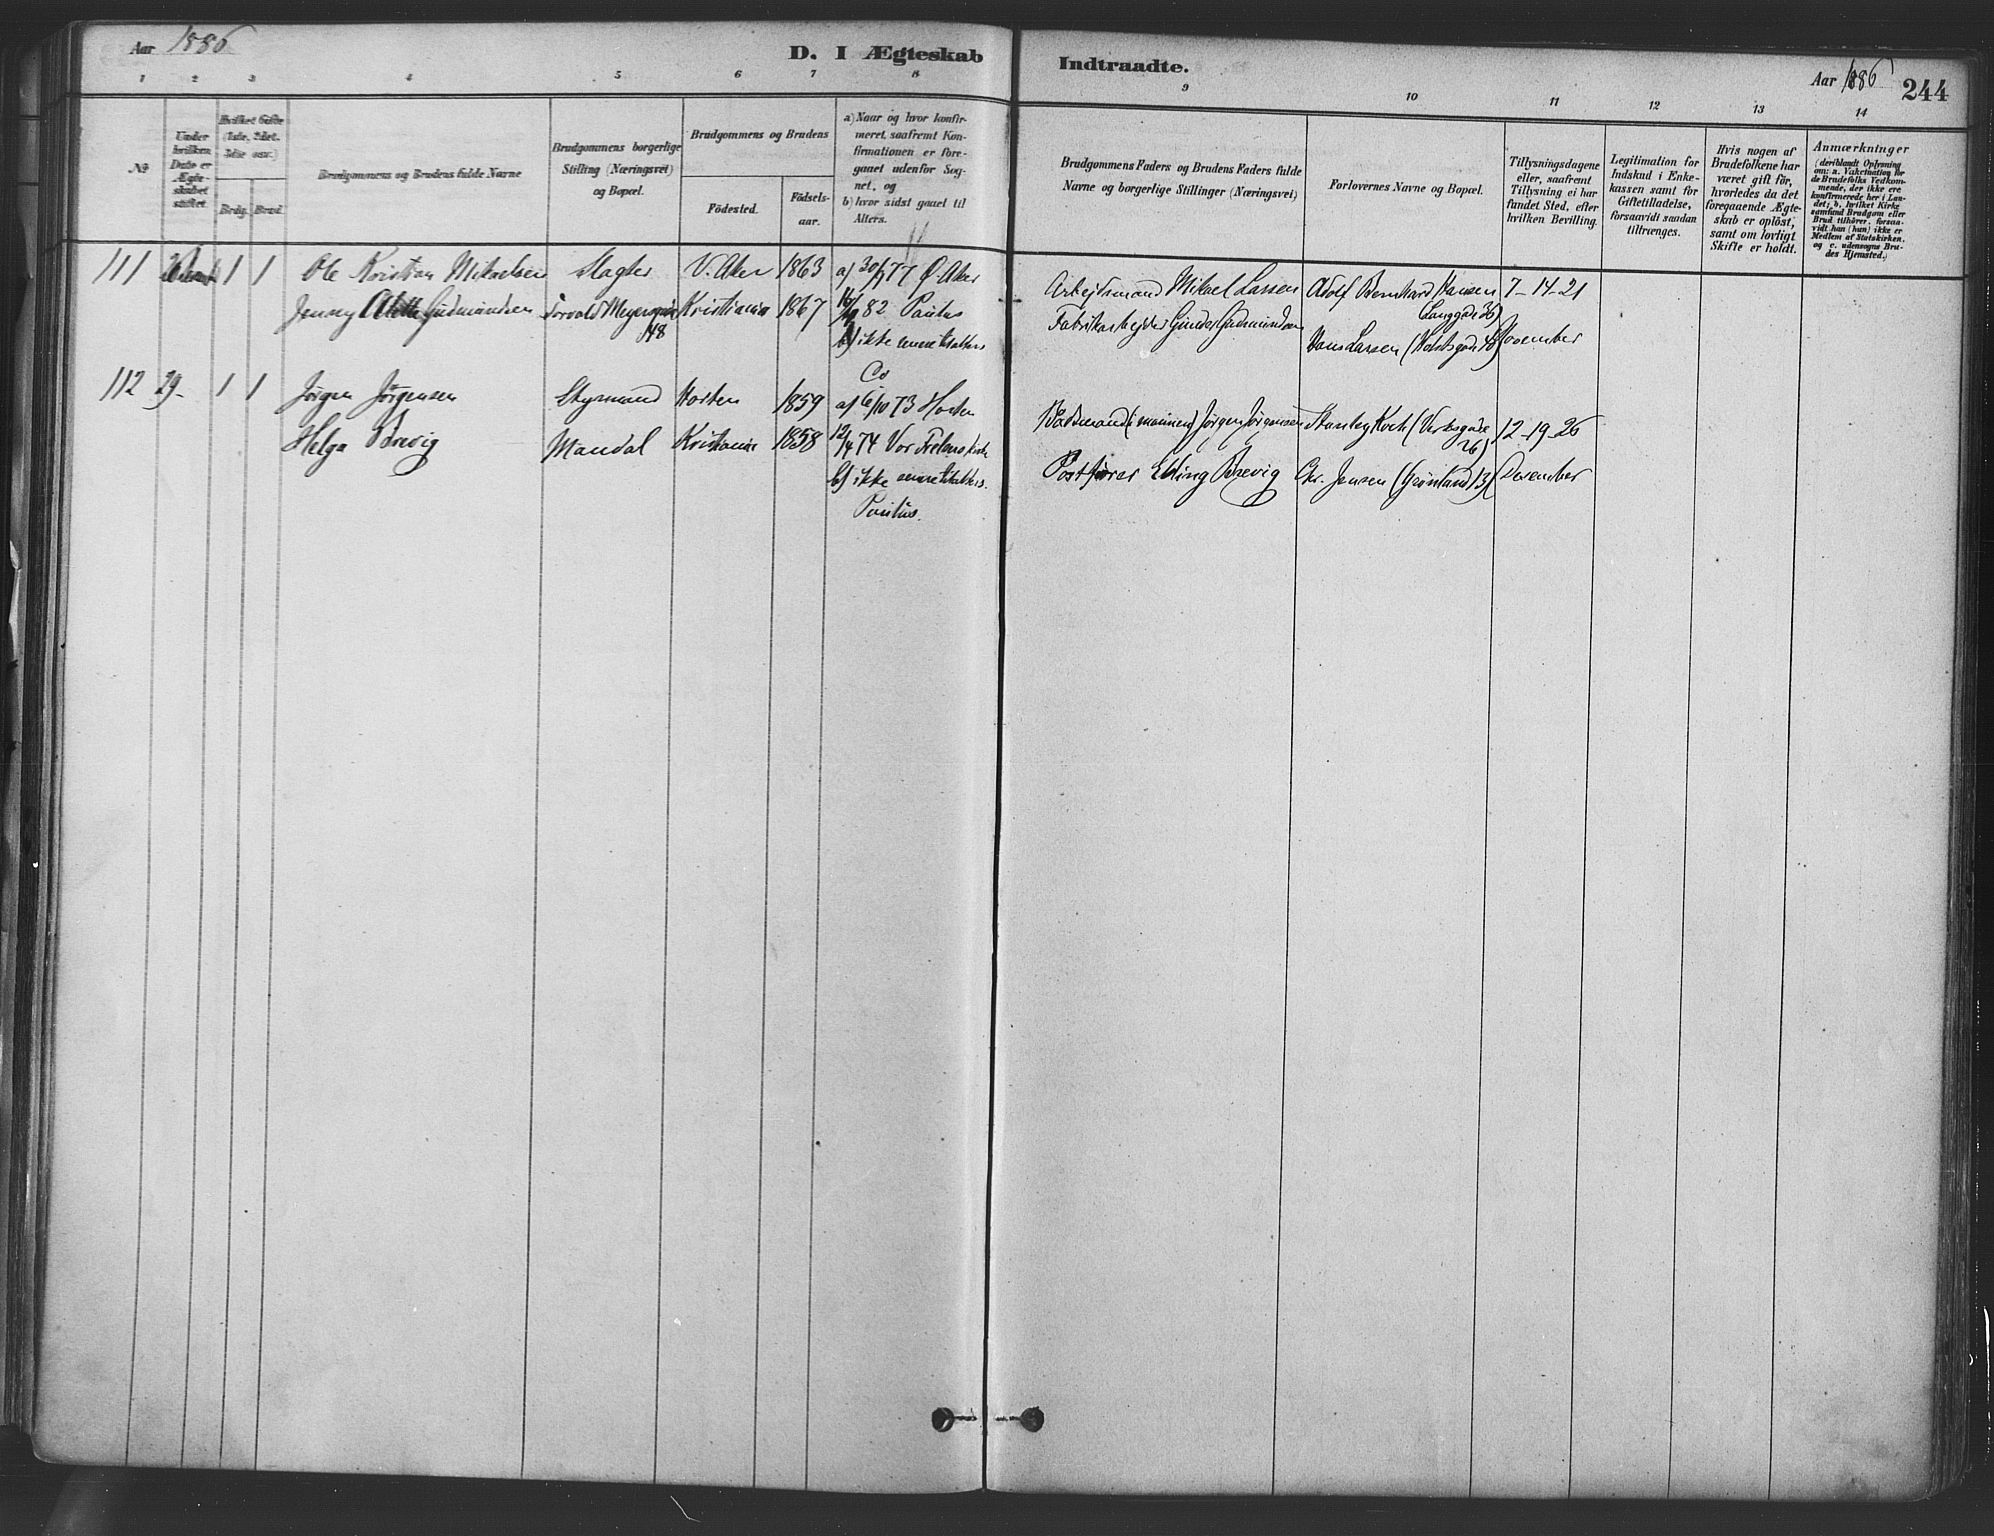 Aar 1886
D. I Ægteskab
Indtraadte.
Aar 1886
244
1 2 3 4 5 6 7 8 9 10 11 12 13 14
№
Under
hvilken
Dato er
Ægte-
skabet
stiftet.
Hvilket Gifte
(1ste, 2det,
3die osv.)
Brdg. Brud.
Brudgommens og Brudens fulde Navne
Brudgommens borgerlige
Stilling (Næringsvei)
og Bopæl.
Brudgommens og Brudens
Födested.
Födsels-
aar.
a) Naar og hvor konfir-
meret, saafremt Kon-
firmationen er fore-
gaaet udenfor Sog-
net, og
b) hvor sidst gaaet til
Alters.
Brudgommens Faders og Brudens Faders fulde
Navne og borgerlige Stillinger (Næringsvei)
Forlovernes Navne og Bopæl.
Tillysningsdagene
eller, saafremt
Tillysning ei har
fundet Sted, efter
hvilken Bevilling.
Legitimation for
Indskud i Enke-
kassen samt for
Giftetilladelse,
forsaavidt saadan
tiltrænges.
Hvis nogen af
Brudefolkene har
været gift för,
hvorledes da det
foregaaende Ægte-
skab er oplöst,
samt om lovligt
Skifte er holdt.
Anmærkninger
(deriblandt Oplysning
om: a. Vakcination for
de Brudefolks Vedkom-
mende, der ikke ere
konfirmerede her i Lan-
det; b. hvilket Kirke-
samfund Brudgom eller
Brud tilhörer, forsaa-
vidt han (hun) ikke er
Medlem af Statskirken,
og c. udensogns Bru-
des Hjemsted.)
111 1 1 Ole Kristian Mikaelsen Slagter V. Aker 1863 a) 30/9 77 Ø. Aker Arbejdsmand Mikael Larsen Adolf Bernhard Hansen 7-14-21
Jenny Alette Gudmundsen Torvald Meyersgade Kristiania 1867 82 Paulus Fabrikarbejder Gudmundsen (Langgd. 36)
48 b) ikke Hans Larsen (Holstsgade 48) November
112 29- 1 1 Jørgen Jørgensen Styrmand Horten 1859 a) 6/10 73 Horten Baadsmand (i marinen) Jørgen Jørgensen Stanley Koch (Verksgade 12-19-26
26)
Helga Brevig Mandal Kristiania 1858 12/4 74 Vor Frelsers Kirke Postfører Elling Brevig Chr. Jensen (Grønland 13) Desember
b) ikke
Paulus.